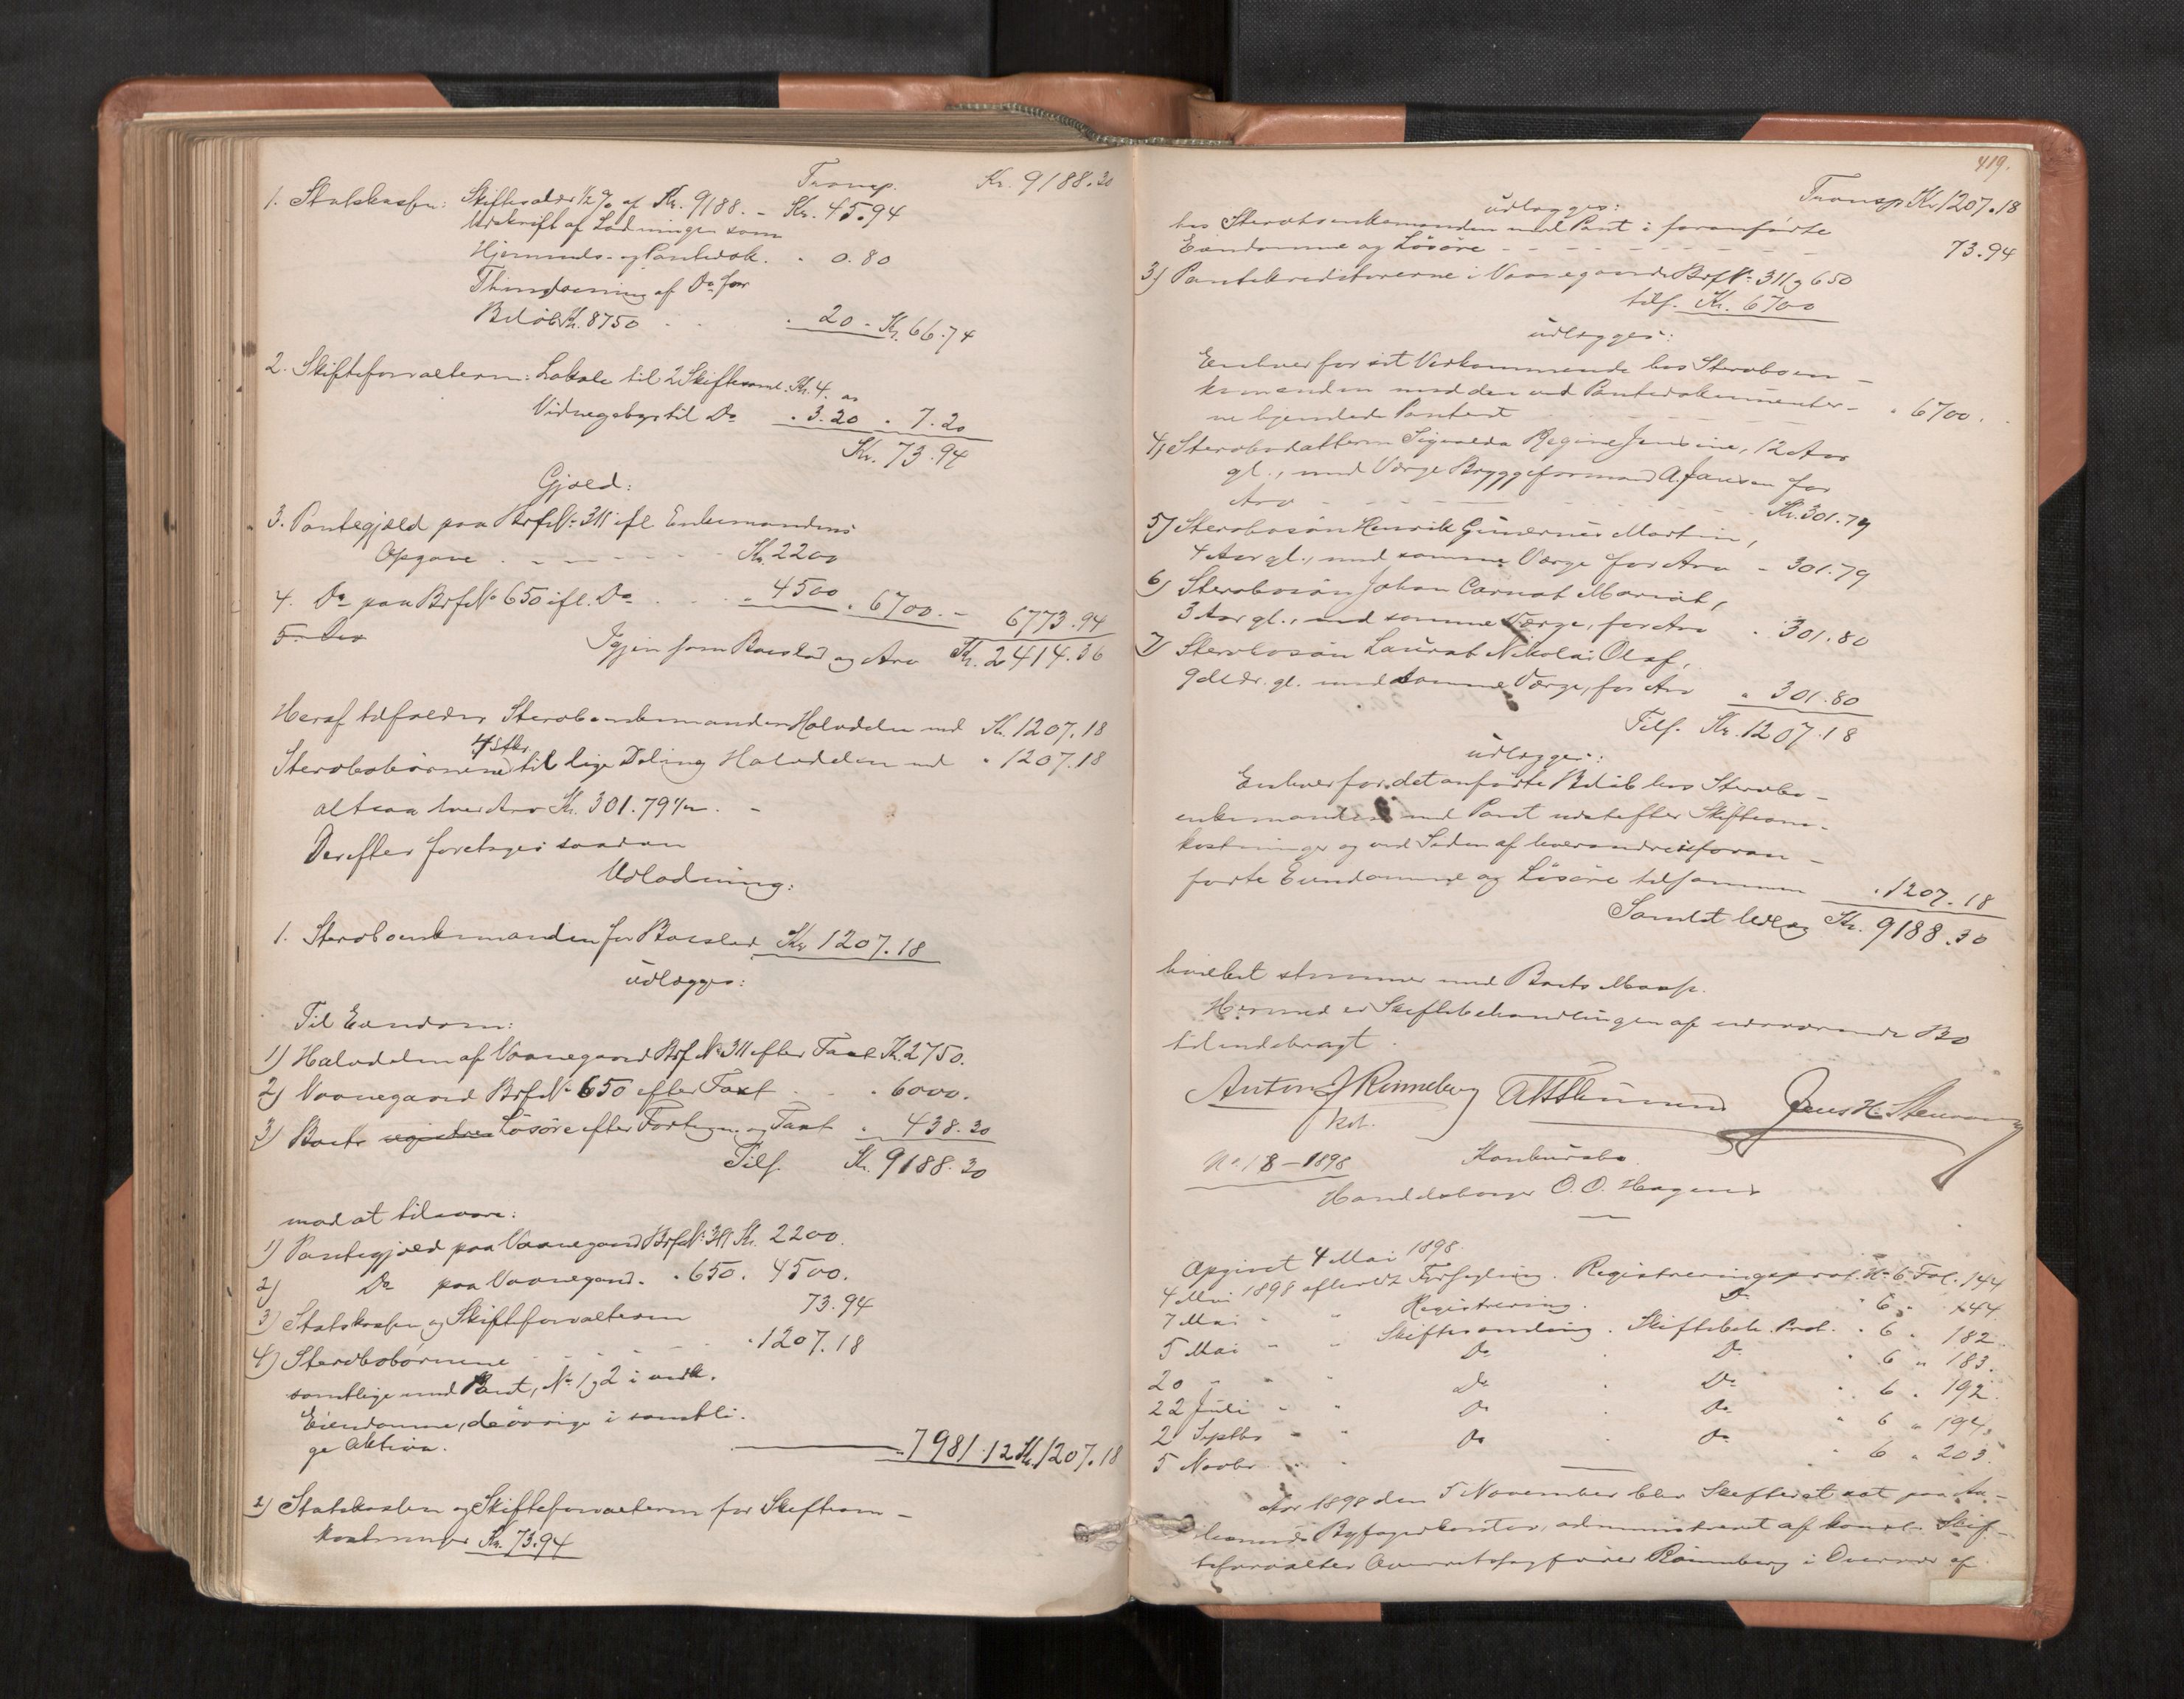 Transp. Kr. 9188.30
1. Statskassen: Skiftesalær ½ % af Kr. 9188. - Kr. 45.94
Udskrift af Lodningen som
Hjemmels- og Pantedok. - 0.80
Thinglæsning af Do for
Beløb Kr. 8750 - 20 - Kr. 66.74
2. Skifteforvalteren: Lokale til 2 Skiftesaml. Kr. 4. 00
Vidnegebyr til Do - 3.20 - 7.20
Kr. 73.94
Gjæld:
3. Pantegjæld paa Brf No 311 ifl. Enkemandens
Opgave - - - - Kr. 2200
4. Do paa Brf No 650 ifl. Do - 4500 - 6700. - 6773.94
5. Do
Igjen som Boeslod og Arv Kr. 2414.36
Heraf tilfalder Stervboenkemanden Halvdelen med Kr. 1207.18
4 stkr.
Stervbobørnene til lige Deling Halvdelen med - 1207.18
altsaa hver Arv Kr. 301.79½. -
Derefter foretages saadan
Udlodning:
1. Stervboenkemanden for Boeslod Kr 1207.18
udlægges:
Til Eiendom:
1) Halvdelen af Vaanegaard Brf. No 311 efter Taxt Kr. 2750.
2) Vaanegaard Brf No 650 efter Taxt - 6000.
3) Boets registrerte Løsøre efter Fortegn. og Taxt - 438.30
Tils. Kr. 9188.30
mod at tilsvare:
1) Pantegjæld paa Vaanegaard Brf. No 311 Kr. 2200.
2) Do paa Vaanegaard - 650. 4500.
3) Statskassen og Skifteforvalteren 73.94
4) Stervbobørnene - - - - 1207.18
samtlige med Pant, No 1 og 2 i vedk.
Eiendomme, de øvrige i samtli-
ge Aktiva. 7981.12 Kr. 1207.18
2) Statskassen og Skifteforvalteren for Skifteom-
kostninger Kr. 73.94
419.
Transp Kr. 1207.18
udlægges:
hos Stervboenkemanden med Pant i foranførte
Eiendomme og Løsøre - - - - 73.94
3) Pantekreditorerne i Vaanegaarde Brf No 311 og 650
tils. Kr. 6700
udlægges:
Enhver for sit Vedkommende hos Stervboen-
kemanden med den ved Pantedokumenter-
ne hjemlede Panteret - - - - 6700.
4) Stervbodatteren Signalda Regine Jensine, 12 Aar
gl., med Værge Bryggeformand A. Jansen for
Arv - - - - Kr. 301.79
5) Stervbosøn Henrik Gunerius Martin,
4 Aar gl., med samme Værge for Arv - 301.79
6) Stervbosøn Johan Carnot Marius,
3 Aar gl., med samme Værge, for Arv - 301.80
7) Stervbosøn Laurats Nikolai Olaf,
9 Mdr. gl. med samme Værge, for Arv - 301.80
Tils. Kr. 1207.18
udlægges:
Enhver for det anførte Beløb hos Stervbo-
enkemanden med Pant næstefter Skifteom-
kostninger og ved Siden af hverandre i foran-
førte Eiendomme og Løsøre tilsammen - 1207.18
Samlet Udlæg Kr. 9188.30
hvilket stemmer med Boets Masse.
Hermed er Skiftebehandlingen af nærværende Bo
tilendebragt.
Anton J Rønneberg
kst.
Jens H. Stenvaag
No. 18 - 1898
Konkursbo
Handelsborger O. O. Hagens
Opgivet 4 Mai 1898.
4 Mai 1898 afholdt Forsegling. Registreringsprot. No 6 Fol. 144
7 Mai " " Registrering. Do " 6 " 144
5 Mai " " Skiftesamling. Skiftebeh. Prot. " 6 " 182
20 " " " Do Do " 6 " 183.
22 Juli " " Do Do " 6 " 192
2 Septbr " " Do Do " 6 " 194.
5 Novbr " " Do Do " 6 " 203.
Aar 1898 den 5 November blev Skifteret sat paa Aa-
lesunds Byfogedkontor, administreret af konst. Skif-
teforvalter Overretssagfører Rønneberg i Overvær af